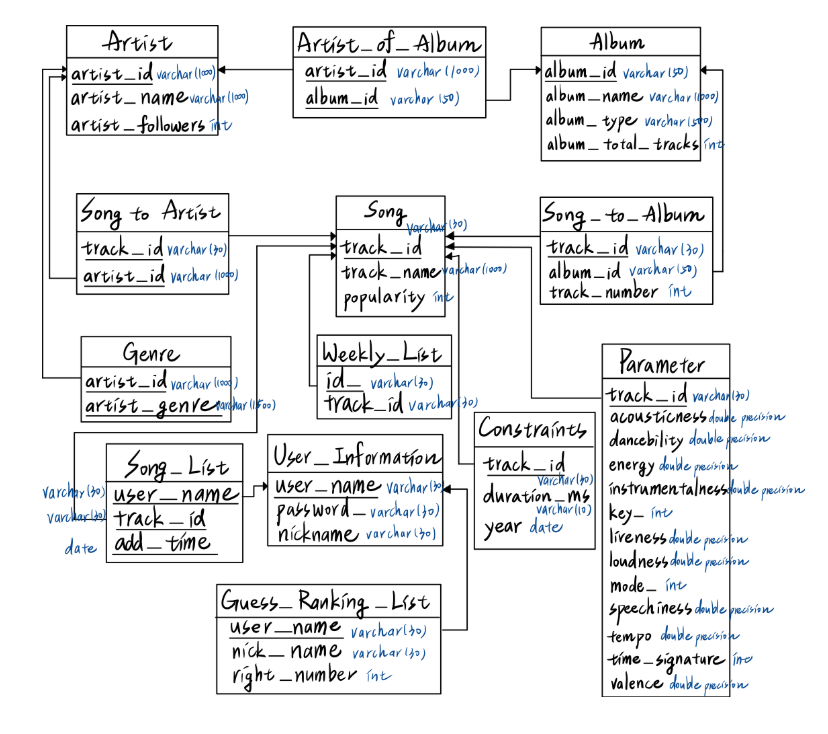 Artist
artist_id varchar(1000)
artist_name varchar(1000)
artist_followers int
Artist_of_Album
artist_id varchar(1000)
album_id varchar(50)
Album
album_id varchar(50)
album_name varchar(1000)
album_type varchar(500)
album_total_tracks int
Song to Artist
track_id varchar(30)
artist_id varchar(1000)
Song
varchar(30)
track_id
track_name varchar(1000)
popularity int
Song_to_Album
track_id varchar(30)
album_id varchar(50)
track_number int
Genre
artist_id varchar(1000)
artist_genre varchar(1500)
Weekly_List
id_ varchar(30)
track_id varchar(30)
Parameter
track_id varchar(30)
acousticness double precision
dancebility double precision
energy double precision
instrumentalness double precision
key_ int
liveness double precision
loudness double precision
mode_ int
speechiness double precision
tempo double precision
time_signature int
valence double precision
Song_List
varchar(30) user_name
varchar(30) track_id
date add_time
User_Information
user_name varchar(30)
password_ varchar(30)
nickname varchar(30)
Constraints
track_id
varchar(30)
duration_ms
varchar(10)
year date
Guess_Ranking_List
user_name varchar(30)
nick_name varchar(30)
right_number int